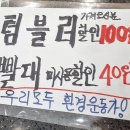 텀블러 할인 100원
빨대 미사용할인 40원
우리모두 환경운동가!